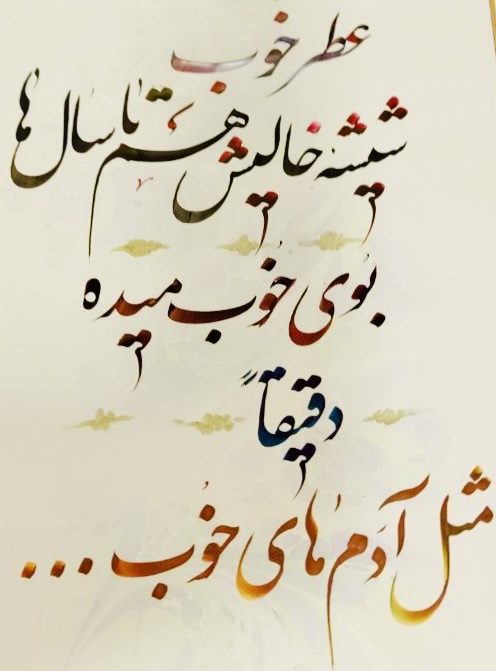 عطر خوب
شیشهٔ خالیش هم تا سال ها
بوی خوب میده
دقیقاً
مثل آدم های خوب ...